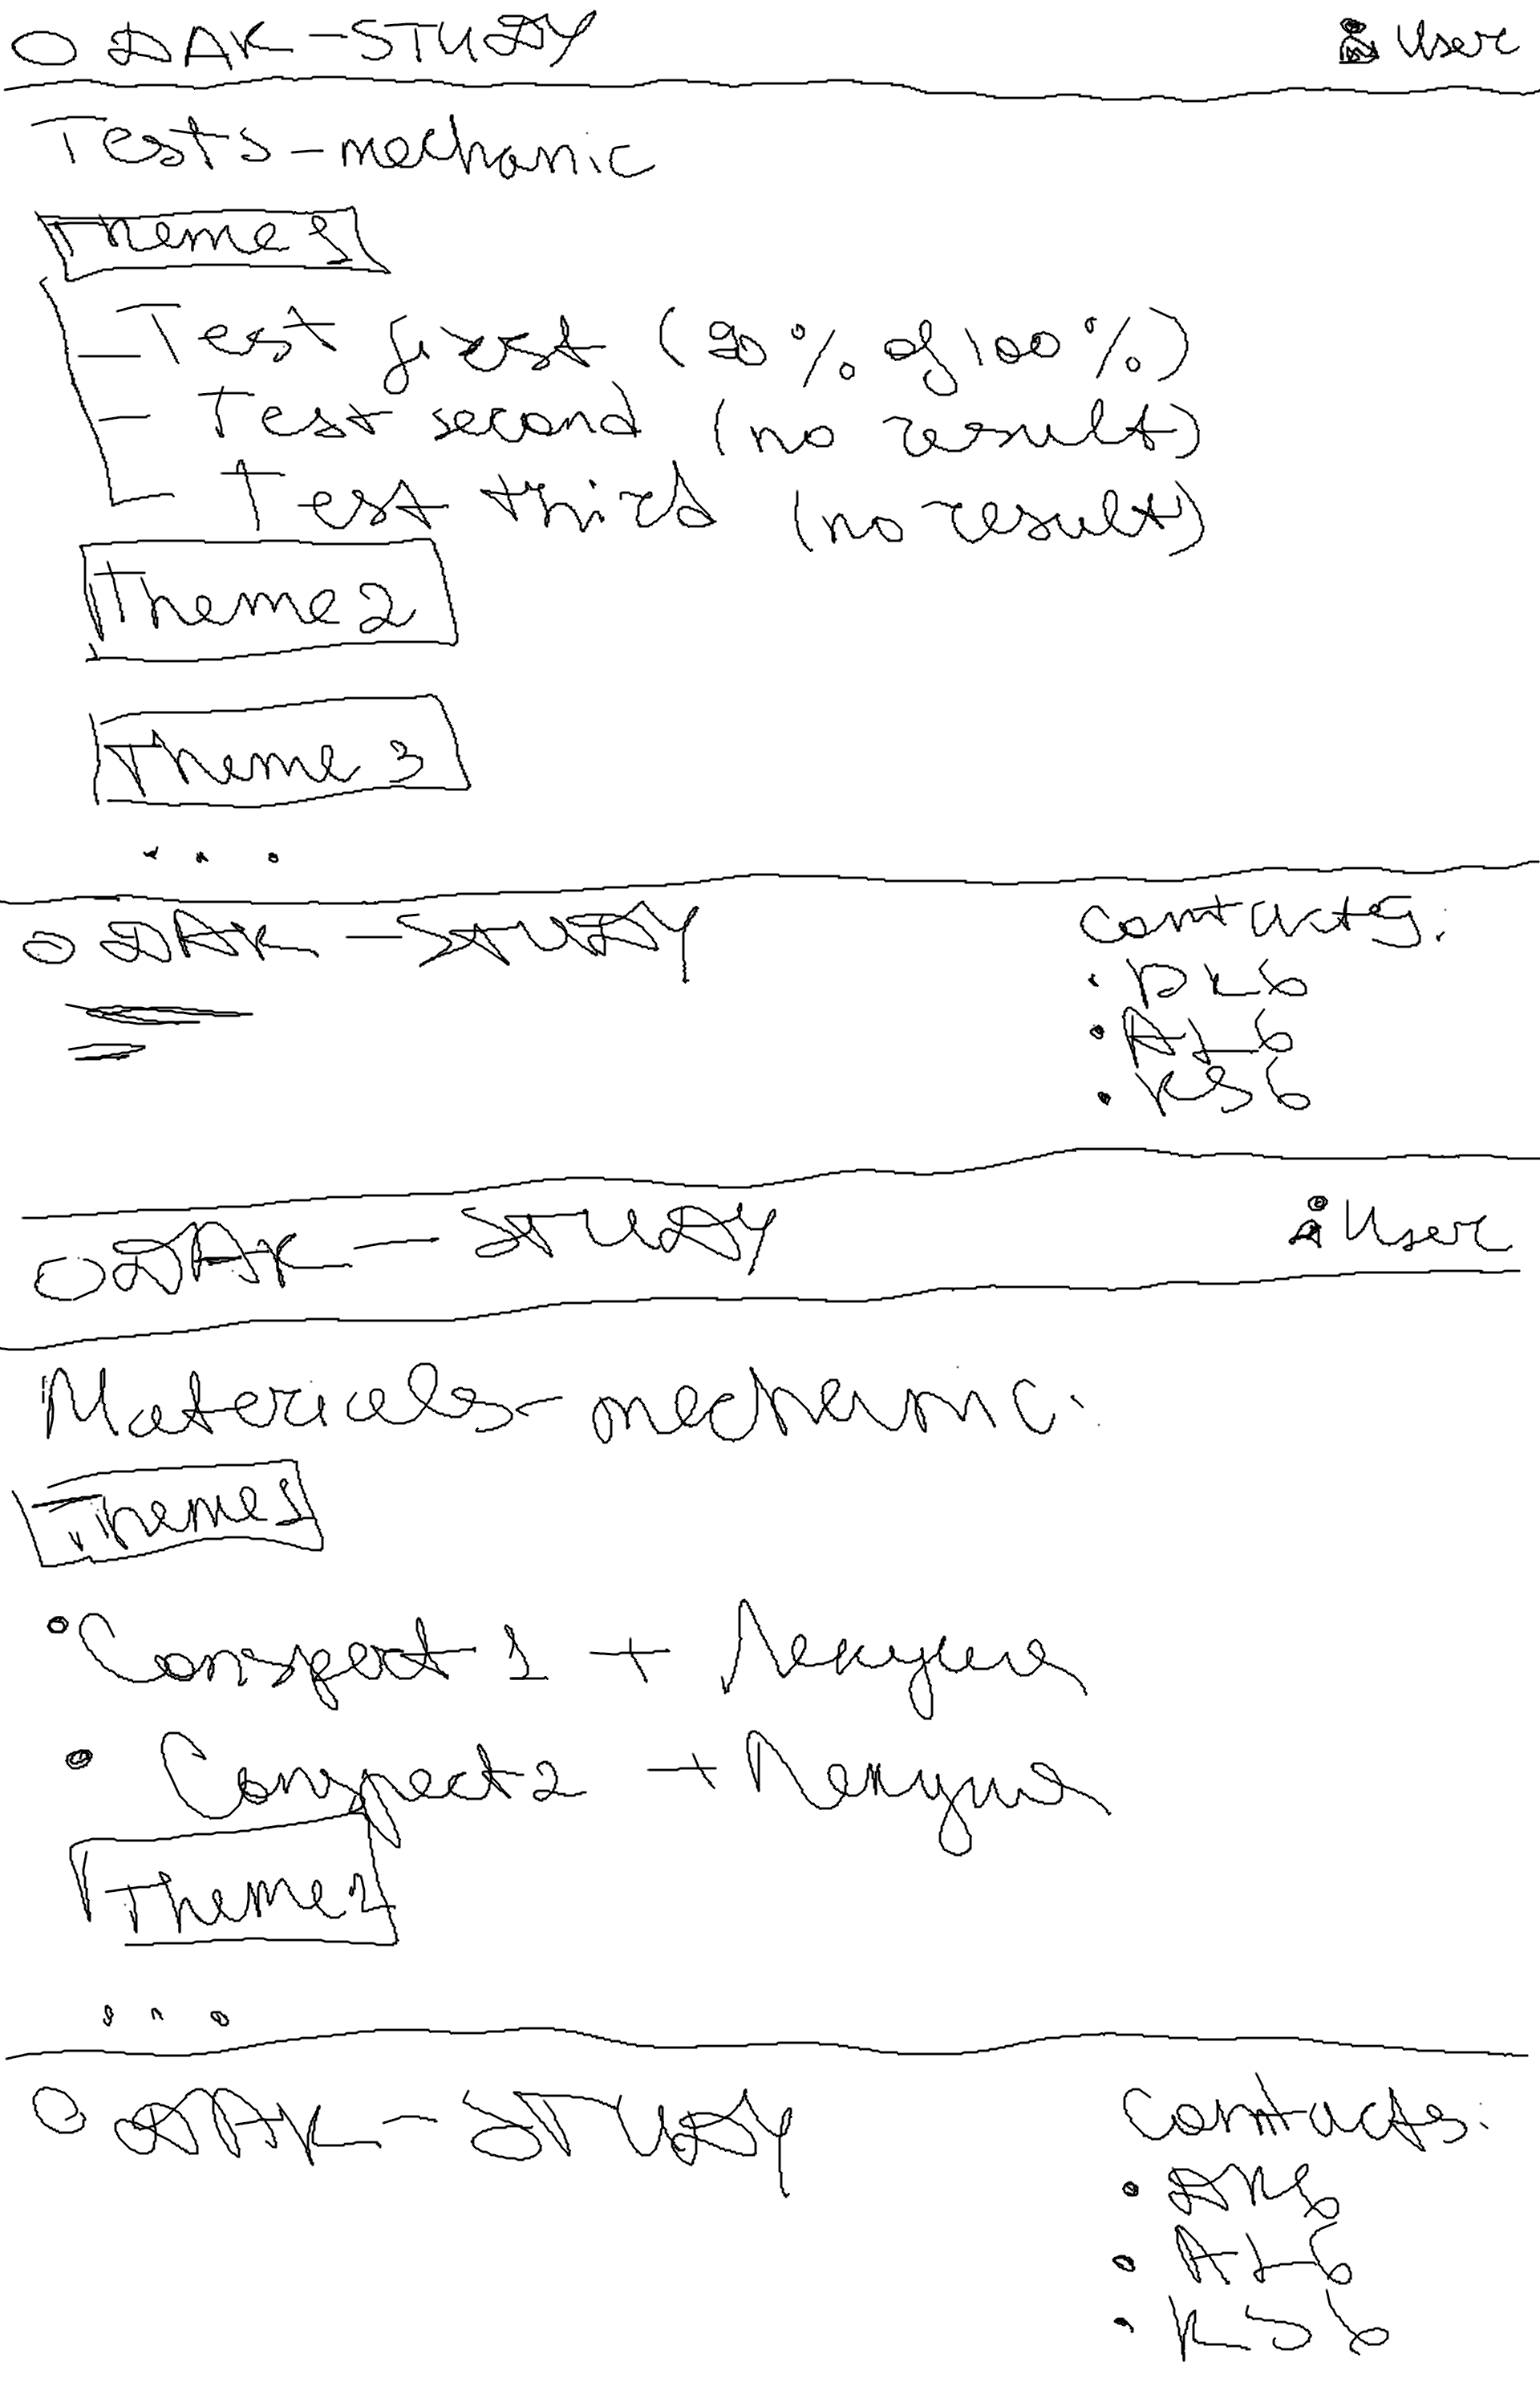 DAK-STUDY User
Tests-mechanic
Theme 1
Test first (90% of 100%)
Test second (no result)
Test third (no result)
Theme 2
Theme 3
...
DAK-STUDY contacts:
ALб
KSб
DAK-STUDY User
Materials-mechanic
Theme 1
Conspect 1 + Лекция
Conspect 2 + Лекция
Theme 1
...
DAK-STUDY contacts:
ALб